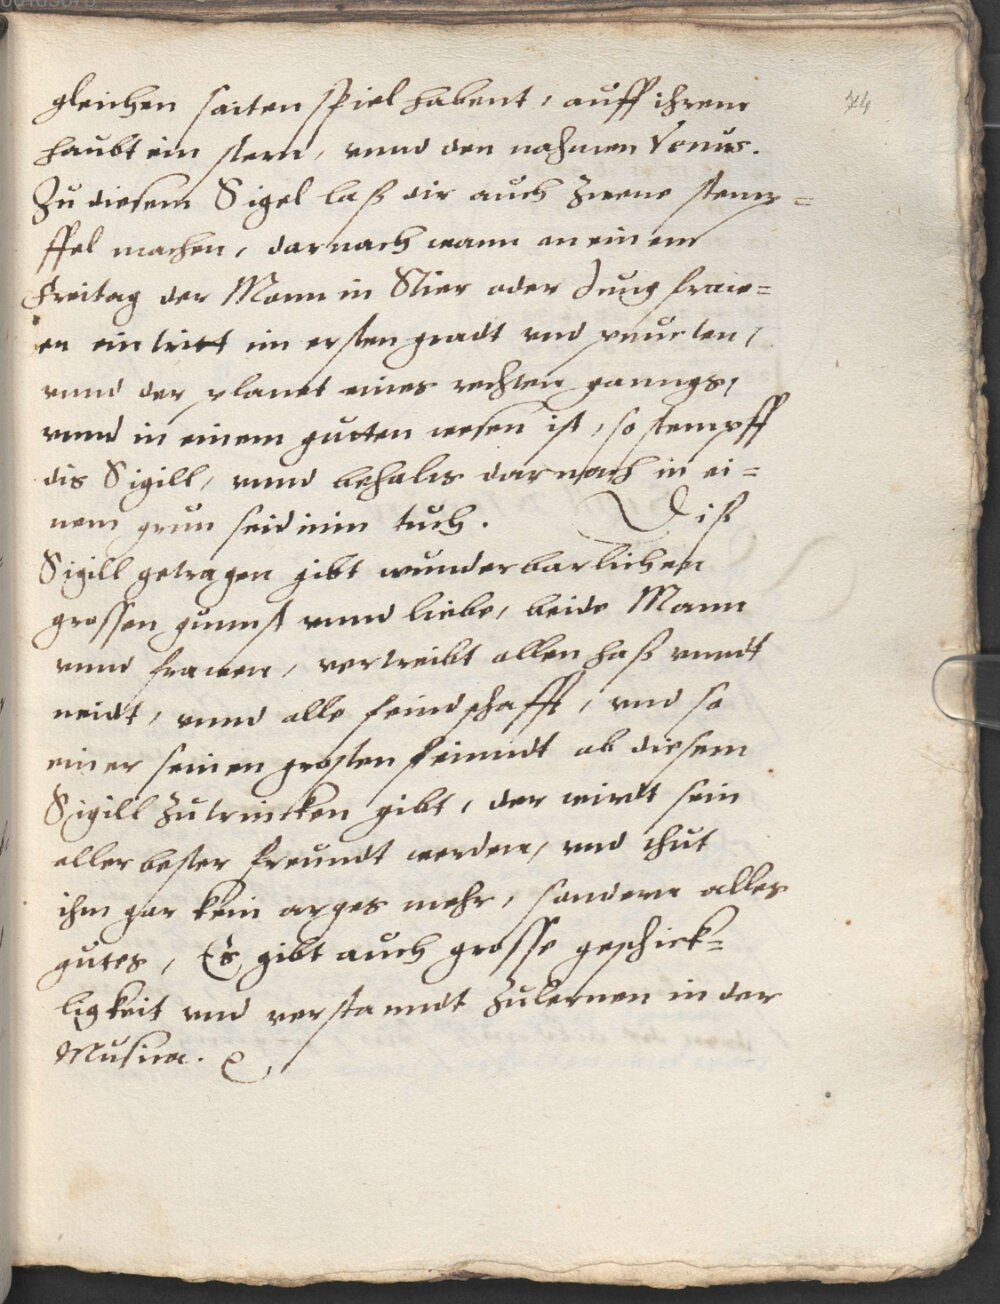 gleichen saiten spiel habent, auff ihrem
74
haubt ein stern, vnnd den nahmen Venus.
Zu diesem Sigel laß dir auch zwene stem=
pffel machen, darnach wann an einem
Freitag der Monn in Stier oder Jungfraw=
en eintritt im ersten gradt vnd puncten,
vnnd der planet eines rechten ganngs,
vnnd in einem gutten wesen ist, so stempff
dis Sigill, vnnd behalts darnach in ei=
nem grun seidinim tuch. Diß
Sigill getragen gibt wunderbarlichen
grossen gunnst vnnd liebe, beide Mann
vnnd frawen, vertreibt allen haß vnndt
neidt, vnnd alle feindschafft, vnd so
einer seinen grosten feinndt ab diesem
Sigill zutrincken gibt, der wirdt sein
aller bester freundt werden, vnd thut
ihm gar kein arges mehr, sondern alles
gutes, Es gibt auch grosse geschick=
ligkeit vnd verstanndt zulernen in der
Musica.